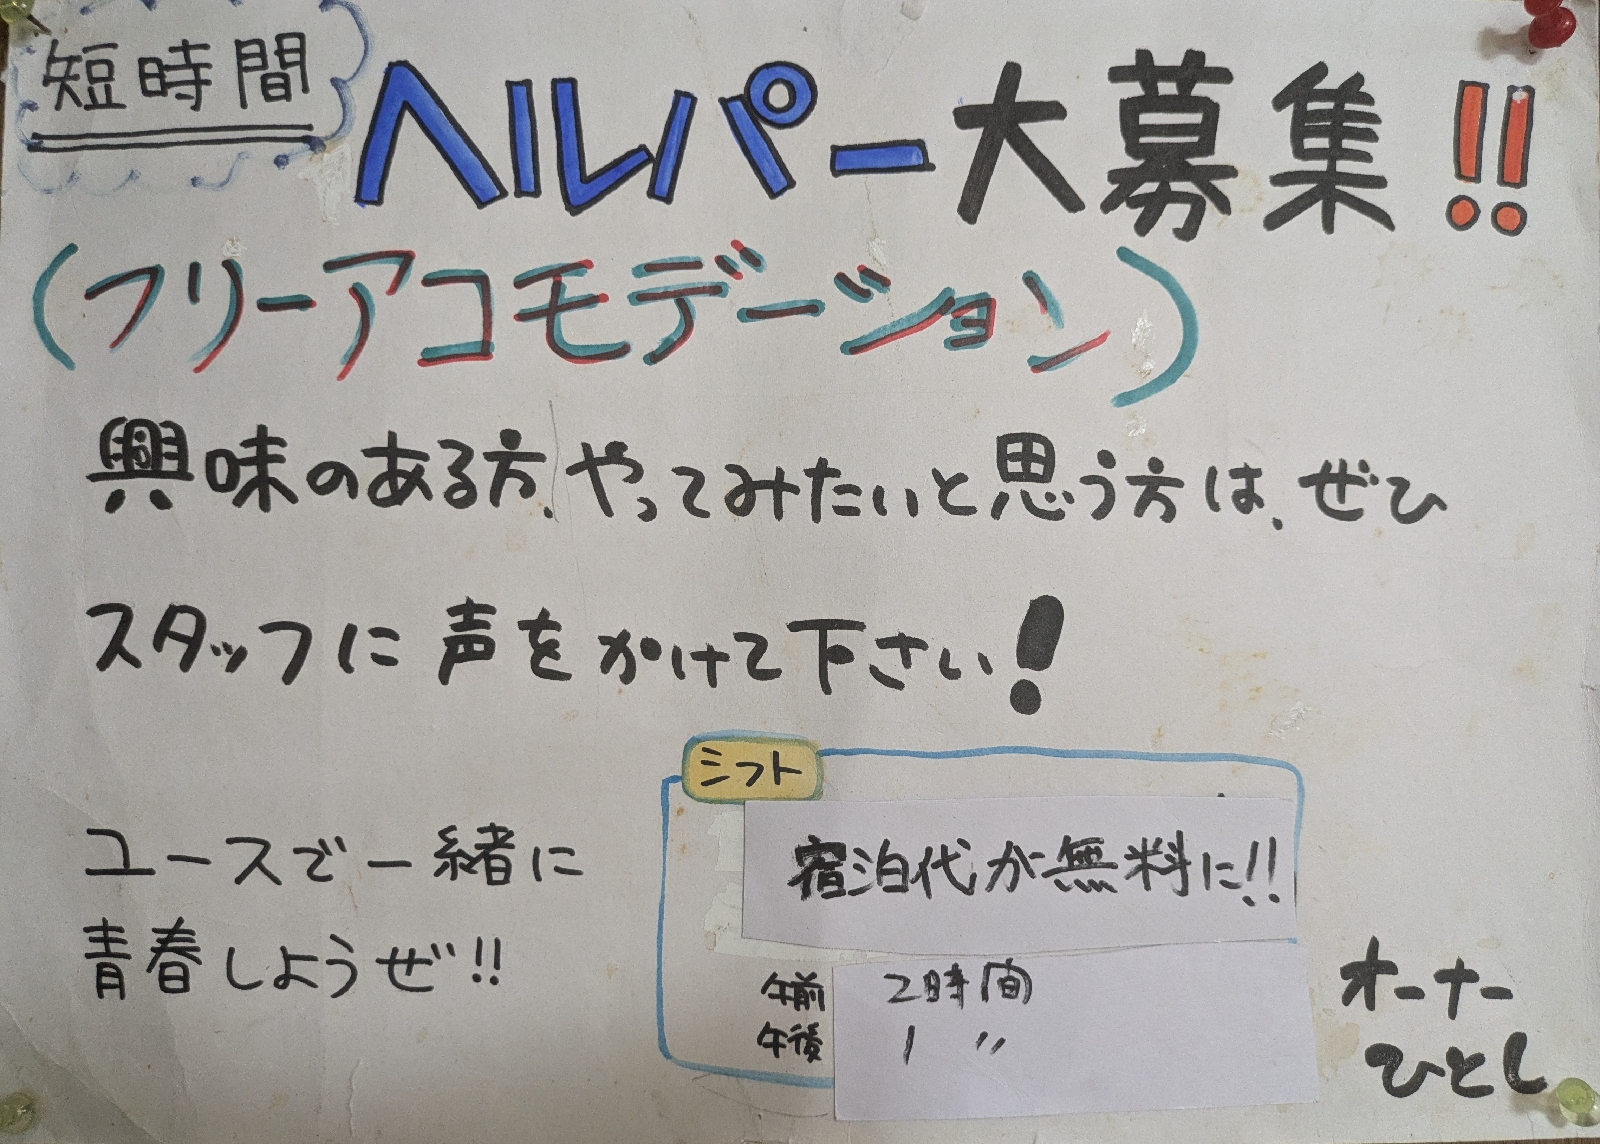 短時間
ヘルパー大募集!!
(フリーアコモデーション)
興味のある方、やってみたいと思う方は、ぜひ
スタッフに声をかけて下さい!
ユースで一緒に
青春しようぜ!!
シフト
宿泊代が無料に!!
午前 2時間
午後 1 〃
オーナー
ひとし